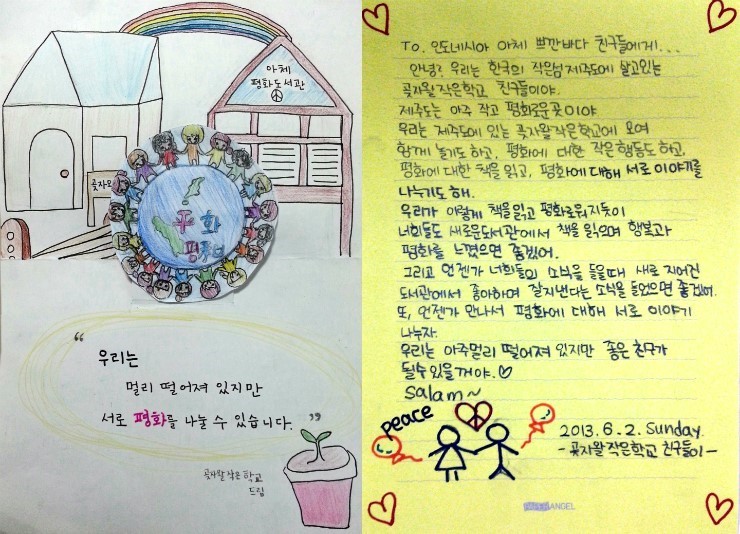 아체
평화도서관
곶자왈
평화
“
우리는
멀리 떨어져 있지만
서로 평화를 나눌 수 있습니다.
”
곶자왈 작은 학교
드림
To. 인도네시아 아체 쁘깐바다 친구들에게...
안녕? 우리는 한국의 작은섬 제주도에 살고있는
곶자왈 작은학교 친구들이야.
제주도는 아주 작고 평화로운곳이야
우리는 제주도에 있는 곶자왈작은학교에 모여
함께 놀기도 하고, 평화에 대한 작은행동도 하고,
평화에 대한 책을 읽고, 평화에 대해 서로 이야기를
나누기도 해.
우리가 이렇게 책을읽고 평화로워지듯이
너희들도 새로운도서관에서 책을 읽으며 행복과
평화를 느꼈으면 좋겠어.
그리고 언젠가 너희들의 소식을 들을때 새로 지어진
도서관에서 좋아하며 잘지낸다는 소식을 들었으면 좋겠어.
또, 언젠가 만나서 평화에 대해 서로 이야기
나누자.
우리는 아주멀리 떨어져 있지만 좋은 친구가
될수있을거야.♡
Salam~
peace
2013.6.2. Sunday.
-곶자왈작은학교 친구들이-
ANGEL